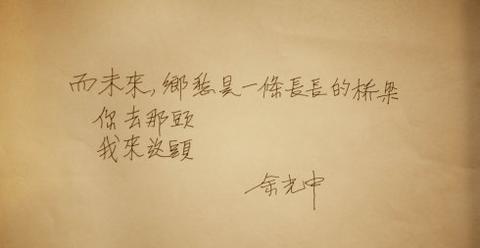 而未來，鄉愁是一條長長的桥梁
你去那頭
我來这頭
余光中